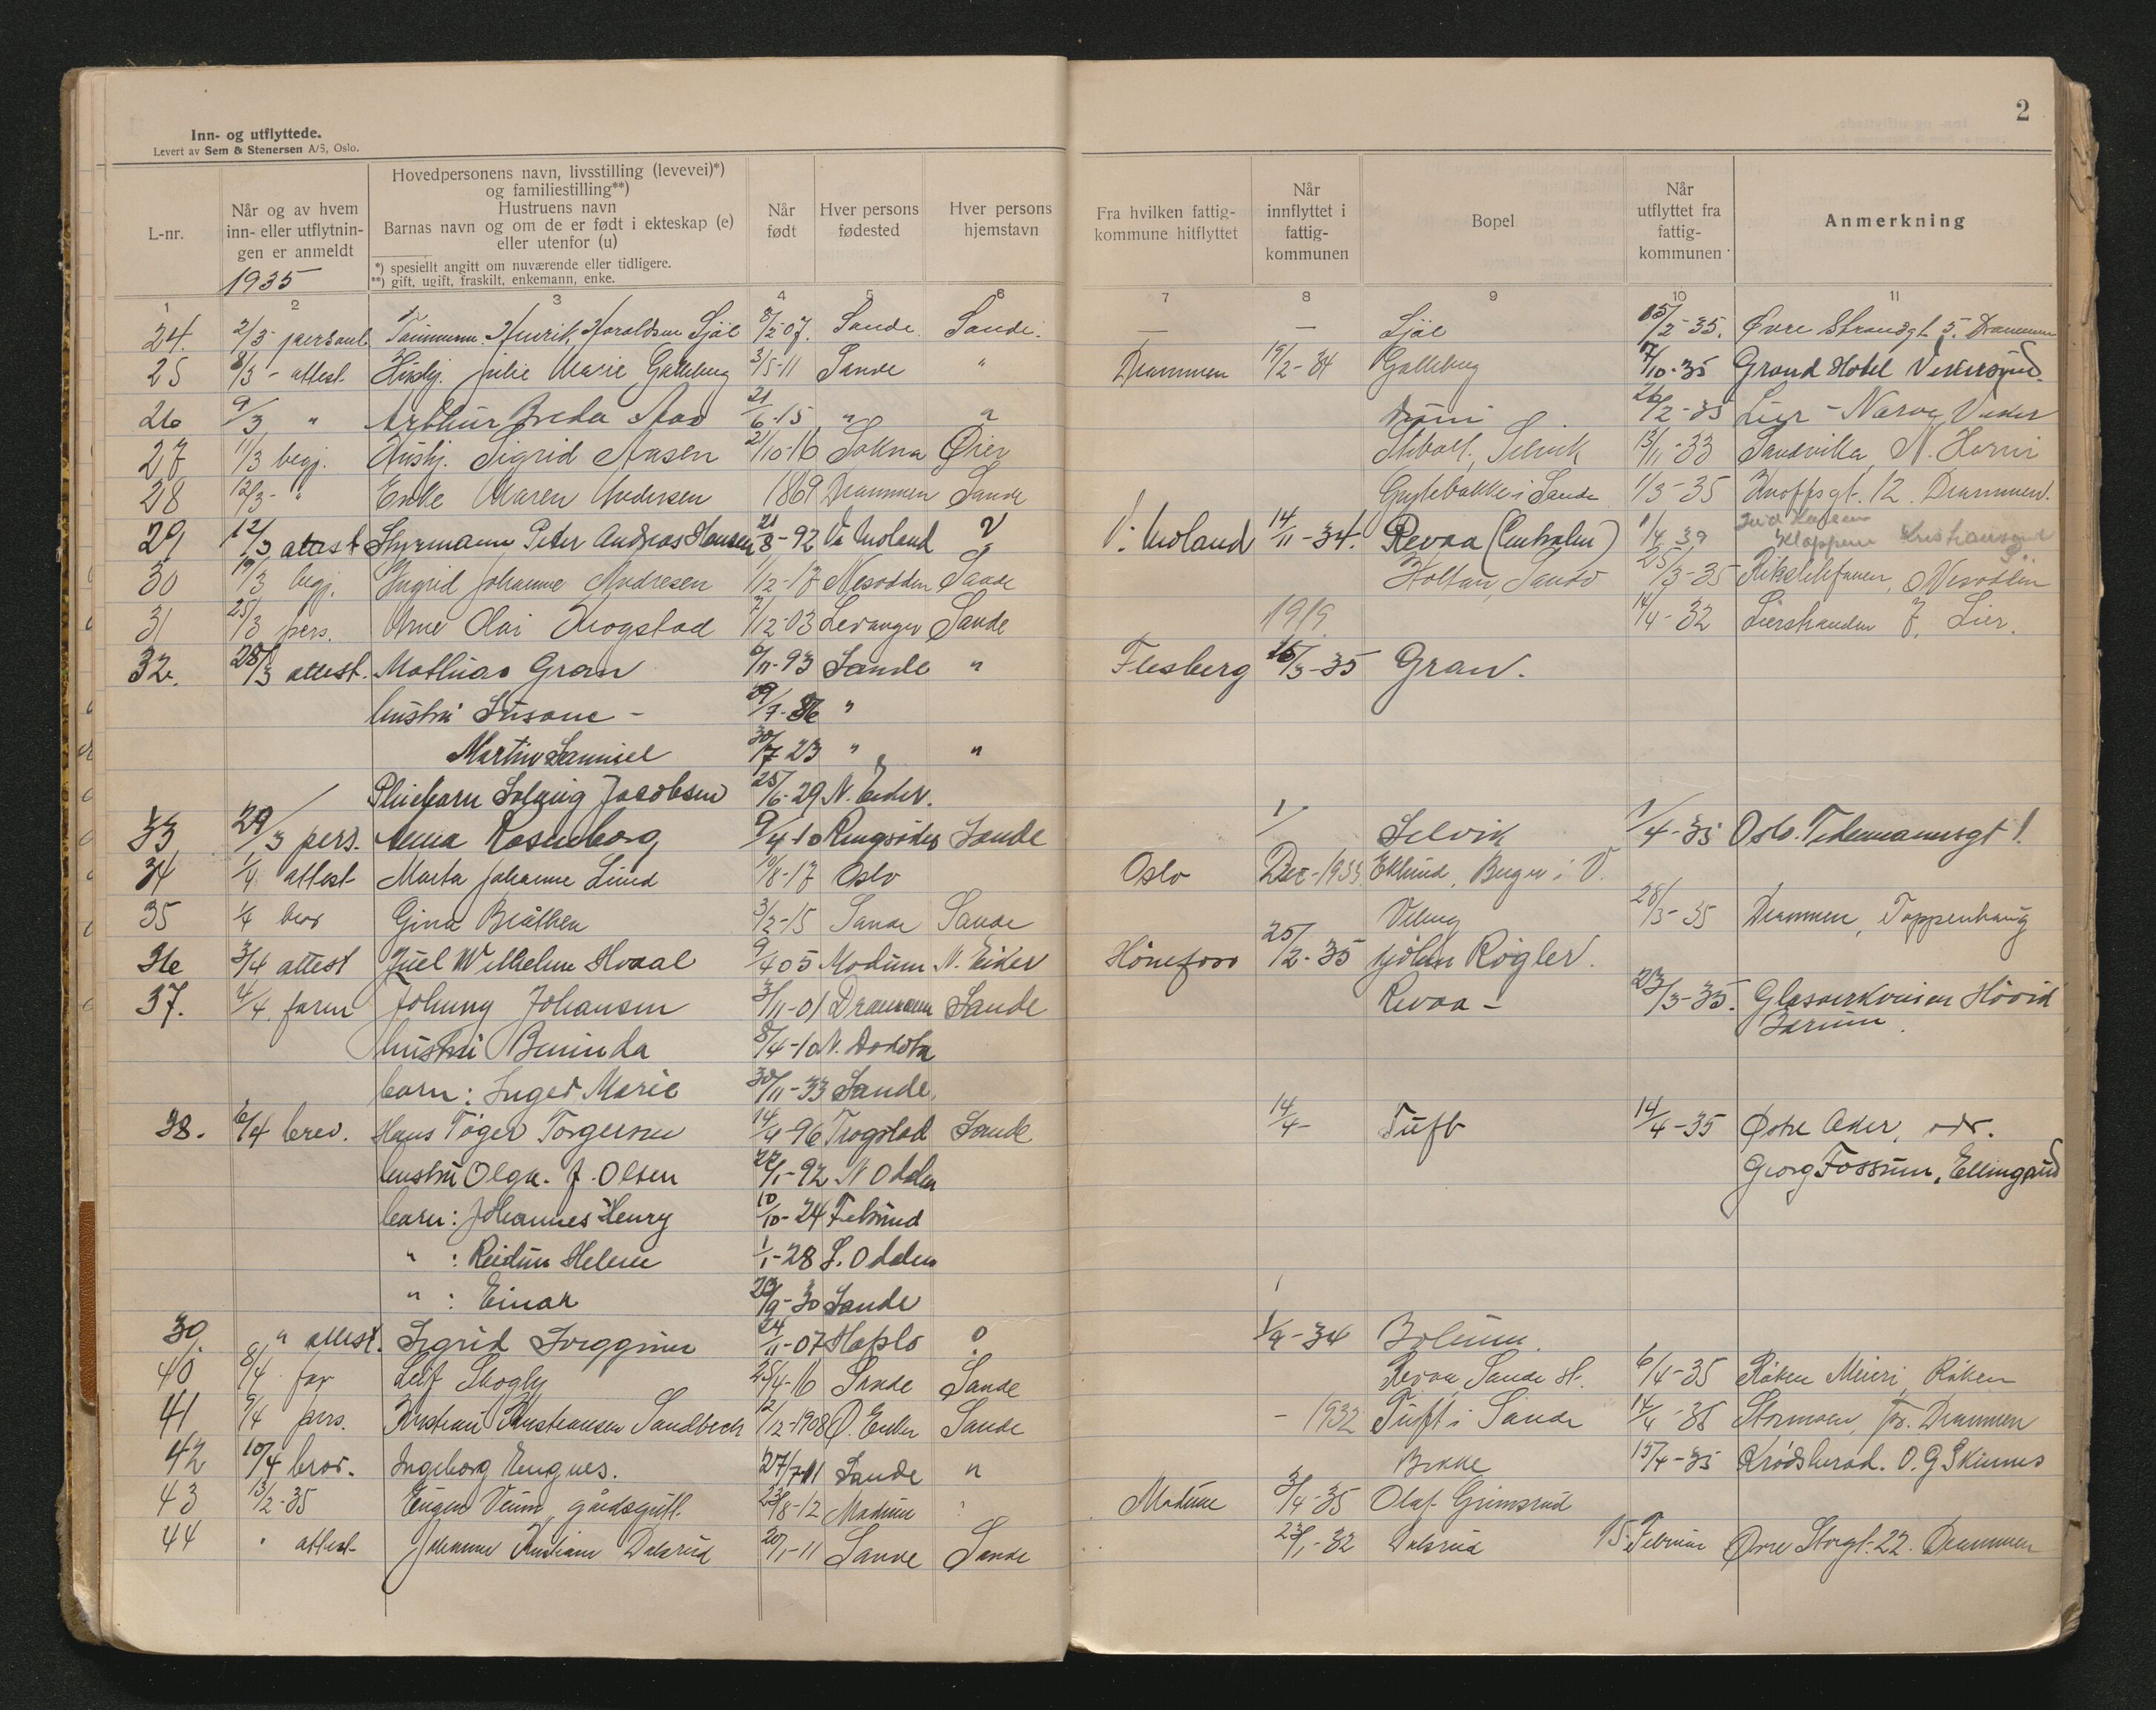 2
Inn- og utflyttede.
Levert av Sem & Stenersen A/S, Oslo.
L-nr.
Når og av hvem
inn- eller utflytnin-
gen er anmeldt
1935
Hovedpersonens navn, livsstilling (levevei)*)
og familiestilling**)
Hustruens navn
Barnas navn og om de er født i ekteskap (e)
eller utenfor (u)
*) spesiellt angitt om nuværende eller tidligere.
**) gift, ugift, fraskilt, enkemann, enke.
Når
født
Hver persons
fødested
Hver persons
hjemstavn
Fra hvilken fattig-
kommune hitflyttet
Når
innflyttet i
fattig-
kommunen
Bopel
Når
utflyttet fra
fattig-
kommunen
Anmerkning
1 2 3 4 5 6 7 8 9 10 11
24. 2/3- Henrik Haraldsen Sjøl 8/2-07. Sande Sande. — — Sjøl 15/2-35. Øvre Strandgt. 5. Drammen
25 8/3 - attest. Hushj. Julie Marie Galleberg 3/5-11 Sande " Drammen 19/2-34 Galleberg 17/10-35 Grand Hotel Vikersund.
26 9/3 " Arthur Aas 21/6-15 " " 26/2-35 Lier -
27 11/3 begj. Hushj. Sigrid Aasen 21/10-16 Sokna Selvik 13/11-33 Sandvika
28 12/3- " Enke Maren Andersen 1869 Drammen Sande Gryteballe i Sande 1/3-35 Knoffsgt. 12. Drammen.
29 12/3 attest Styrmann Peter Andreas Hansen 21/8-92 V. Moland V. Moland 14/11-34. Revaa 1/4 39 Kristiansund
30 19/3 begj. Ingrid Johanne Andresen 1/12-17 Nesodden Sande Holtan, Sande 25/3-35 Nesodden
31 25/3 pers. Arne Olai Krogstad 7/12-03 Levanger Sande 1919. 14/4-32 Lierstranden Lier.
32. 28/3 attest. Mathias Gran 6/11-93 Sande " Flesberg 15/3-35 Gran.
hustru Susane - 29/7-86 "
Martin Samuel 30/7 23 " "
Pleiebarn Solveig Jacobsen 25/6-29 N. Eiker.
33 29/3 pers. Anna Rosenborg 9/4-10 Sande Selvik 1/4-35 Oslo. Tidemannsgt 1.
34 1/4 attest Marta Johanne Lund 10/8-17 Oslo Oslo Eklund, Berger i V.
35 1/4 bror Gina Bråthen 3/2-15 Sande Sande 28/3-35 Drammen, Toppenhaug
36 3/4 attest Juel Wilhelm Hvaal 9/4 05 Modum N. Eiker Hönefoss 25/2-35 Røgler.
37. 4/4 Johnny Johansen 3/11-01 Drammen Sande Revaa - 23/3-35. Glassverkveien Hövik
Bærum.
hustru 8/4-10 N. Dakota
barn: Inger Marie 30/11-33 Sande.
38. 6/4 brev. Hans Töger Torgersen 14/4-96 Trøgstad Sande 14/4- Tuft 14/4-35 Østre Aker, adr.
Georg Fossum, Ellingsrud
hustru Olga. J. Olsen 22/1-92 N Odalen
barn: Johannes Henry 10/10-24 Fetsund
" : Reidun Helene 1/1-28 S. Odalen
" : Einar 29/9-30 Sande
39. " attest. Sigrid 24/11-07 Hafslo 1/9-34
40 8/4 far Leif Skogly 25/4-16 Sande Sande Revaa, Sande st. 6/4-35 Röken Meieri, Röken
41 9/4 pers. Kristian Kristiansen Sandbeck 2/12-1908 Ø. Eiker Sande - 1932 Tuft i Sande 14/4-35 Drammen
42 10/4 bror. Ingeborg Engnes. 27/7 11 Sande " 15/4-35 Krødsherad. O. G. Skinnes
43 13/2-35 Eugen gårdsgutt. 23/8-12 Modum Modum 3/4-35 Olaf Grimsrud
44 " attest Johanne Kristiane Dalsrud 20/1-11 Sande Sande 23/1-32 Dalsrud 15. Februar Øvre Storgt. 22. Drammen